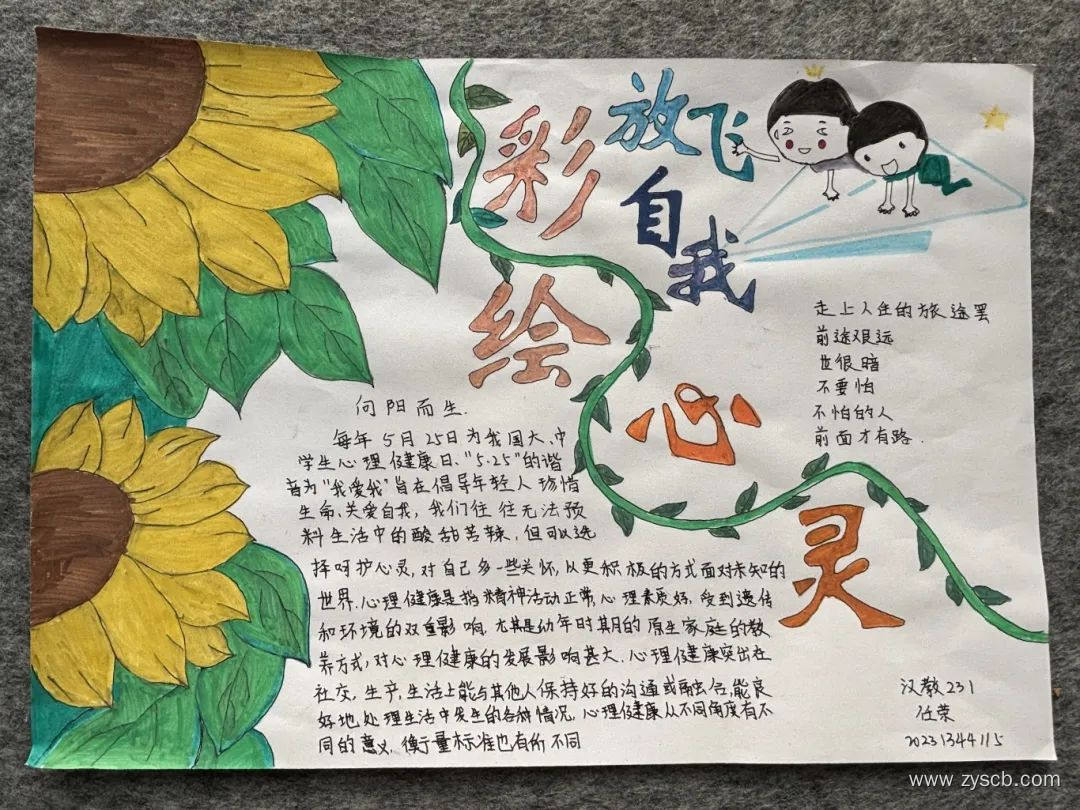 放飞
自我
彩绘
心
灵
走上人生的旅途罢
前途艰远
也很暗
不要怕
不怕的人
前面才有路.
向阳而生.
每年5月25日为我国大、中
学生心理健康日、"5·25"的谐
音为"我爱我"旨在倡导年轻人珍惜
生命、关爱自我, 我们往往无法预
料生活中的酸甜苦辣, 但可以选
择呵护心灵, 对自己多一些关怀, 从更积极的方式面对未知的
世界. 心理健康是指精神活动正常, 心理素质好, 受到遗传
和环境的双重影响. 尤其是幼年时期月的原生家庭的教
养方式, 对心理健康的发展影响甚大. 心理健康突出在
社交, 生产, 生活上能与其他人保持好的沟通或融合, 能良
好地处理生活中发生的各种情况. 心理健康从不同角度有不
同的意义, 衡量标准也有所不同
汉教231
任荣
20231344115
www.zyscb.com